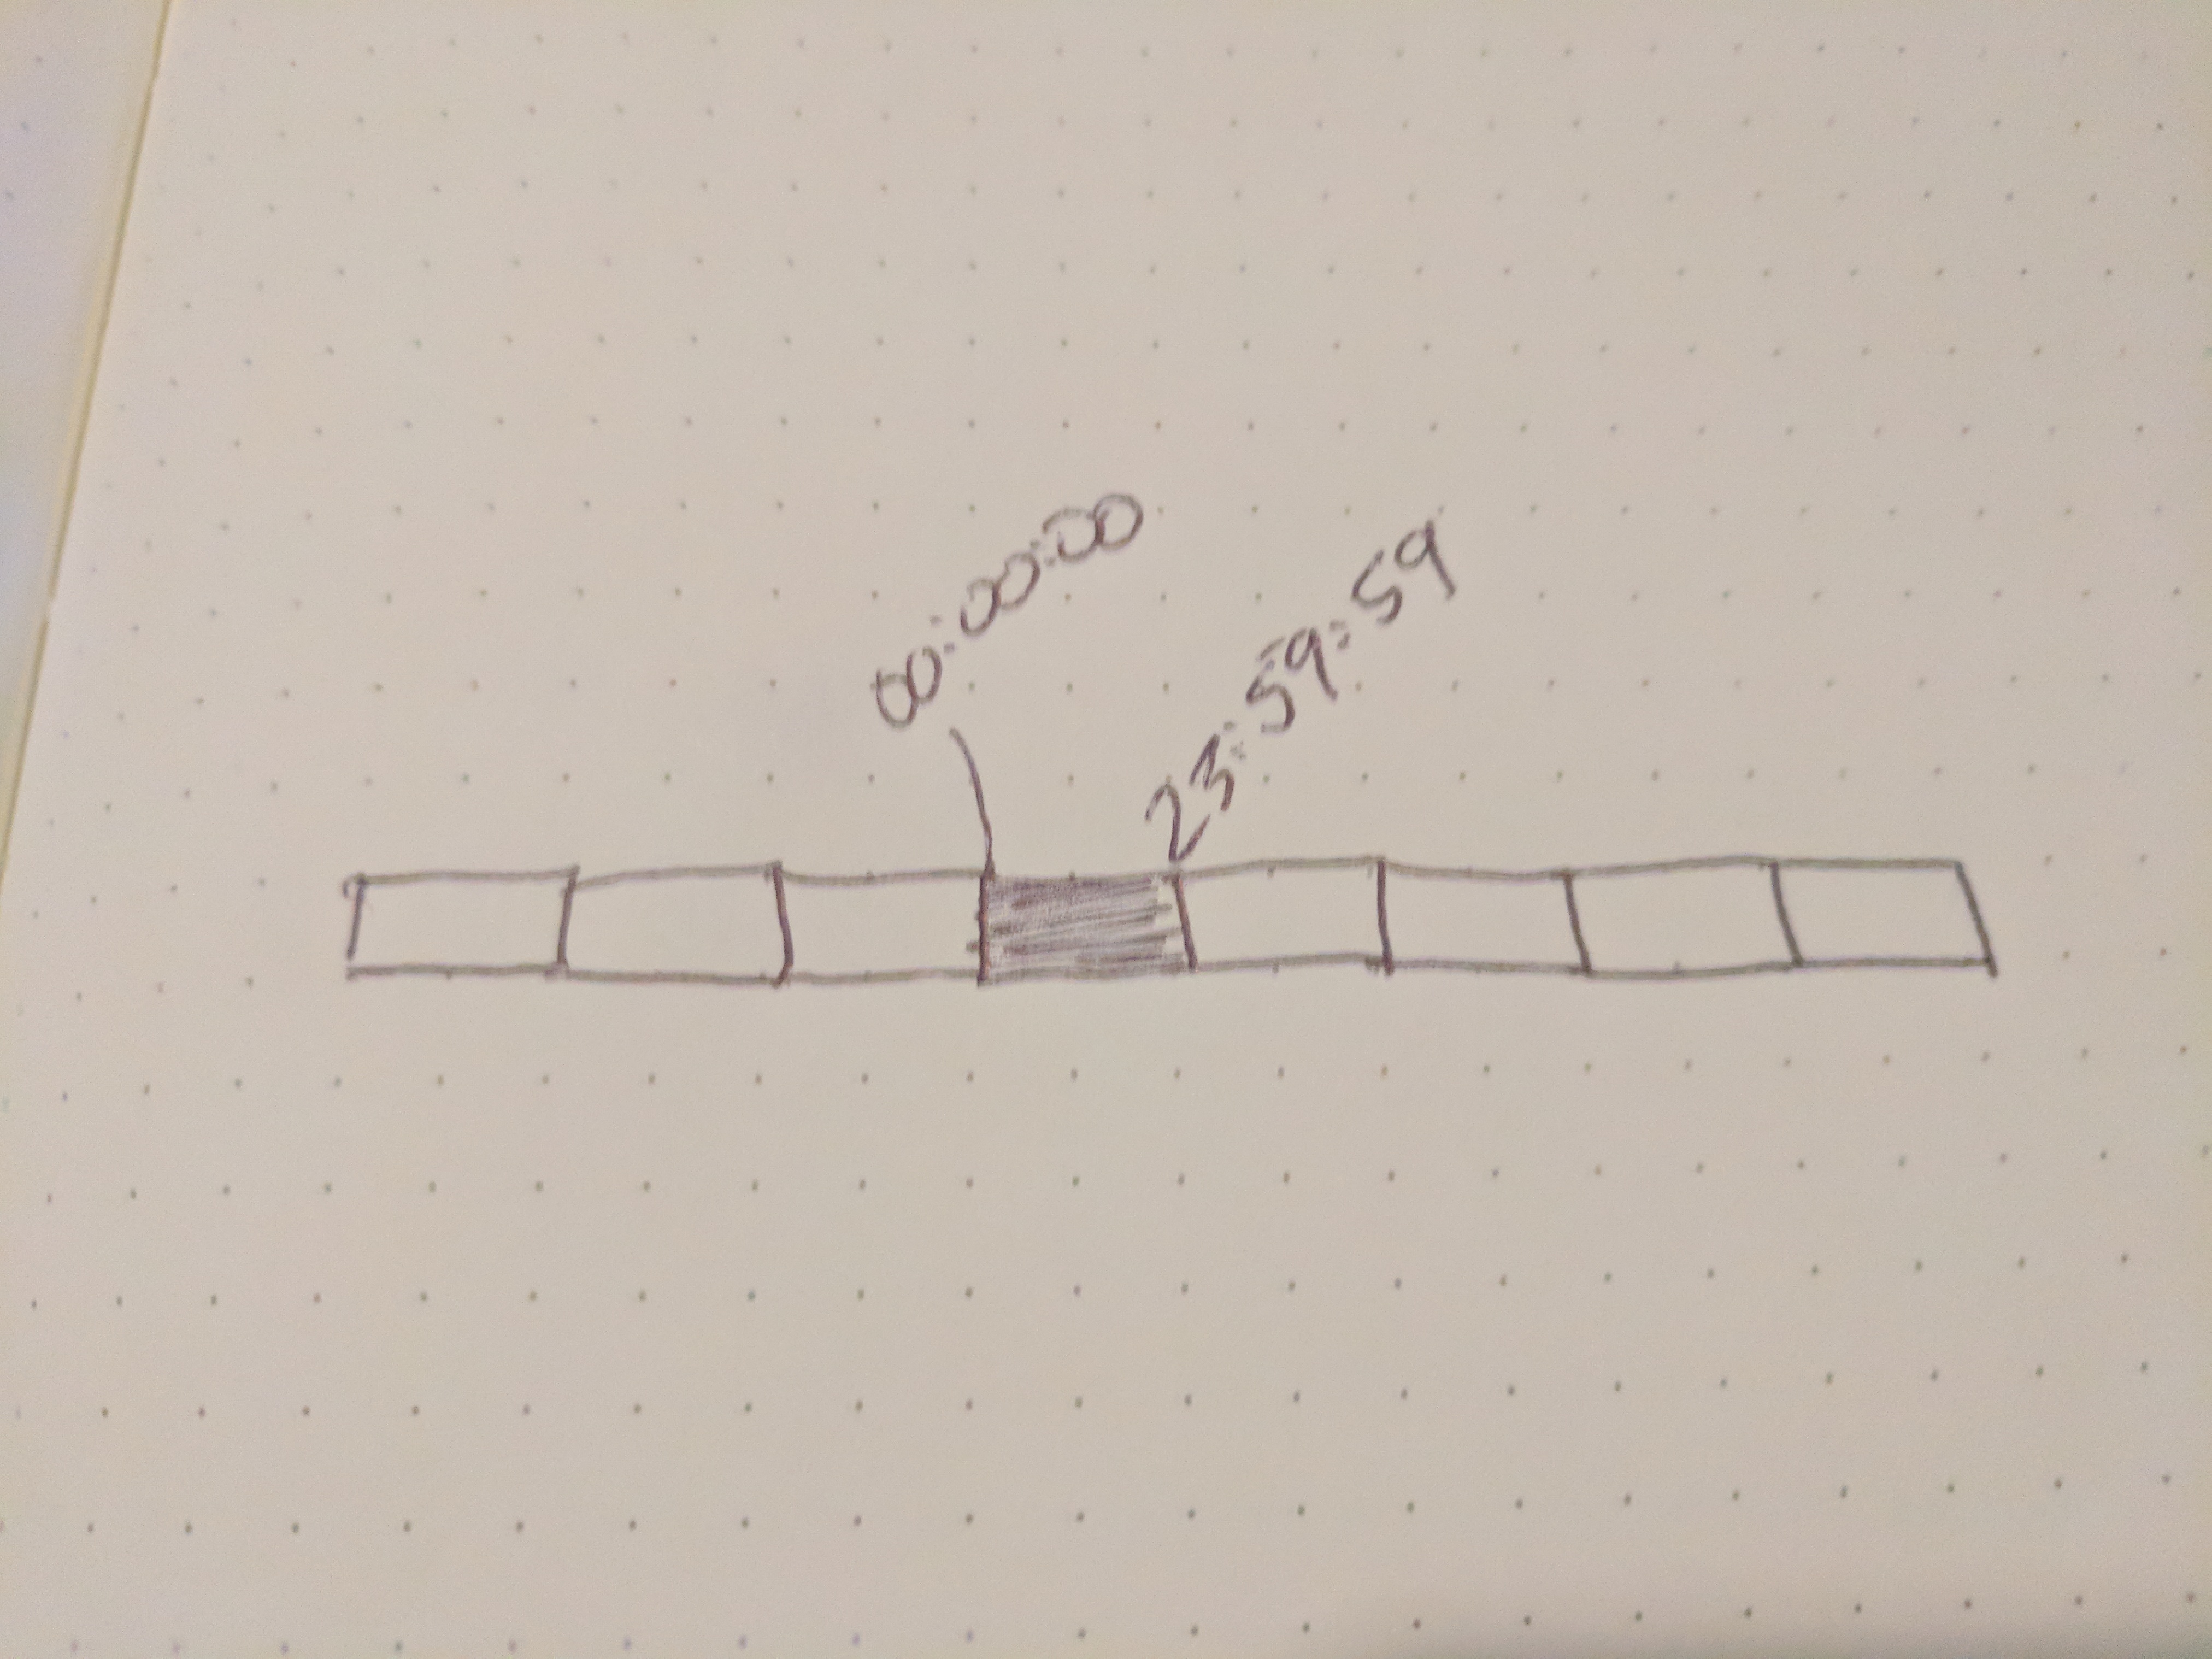 00:00:00
23:59:59